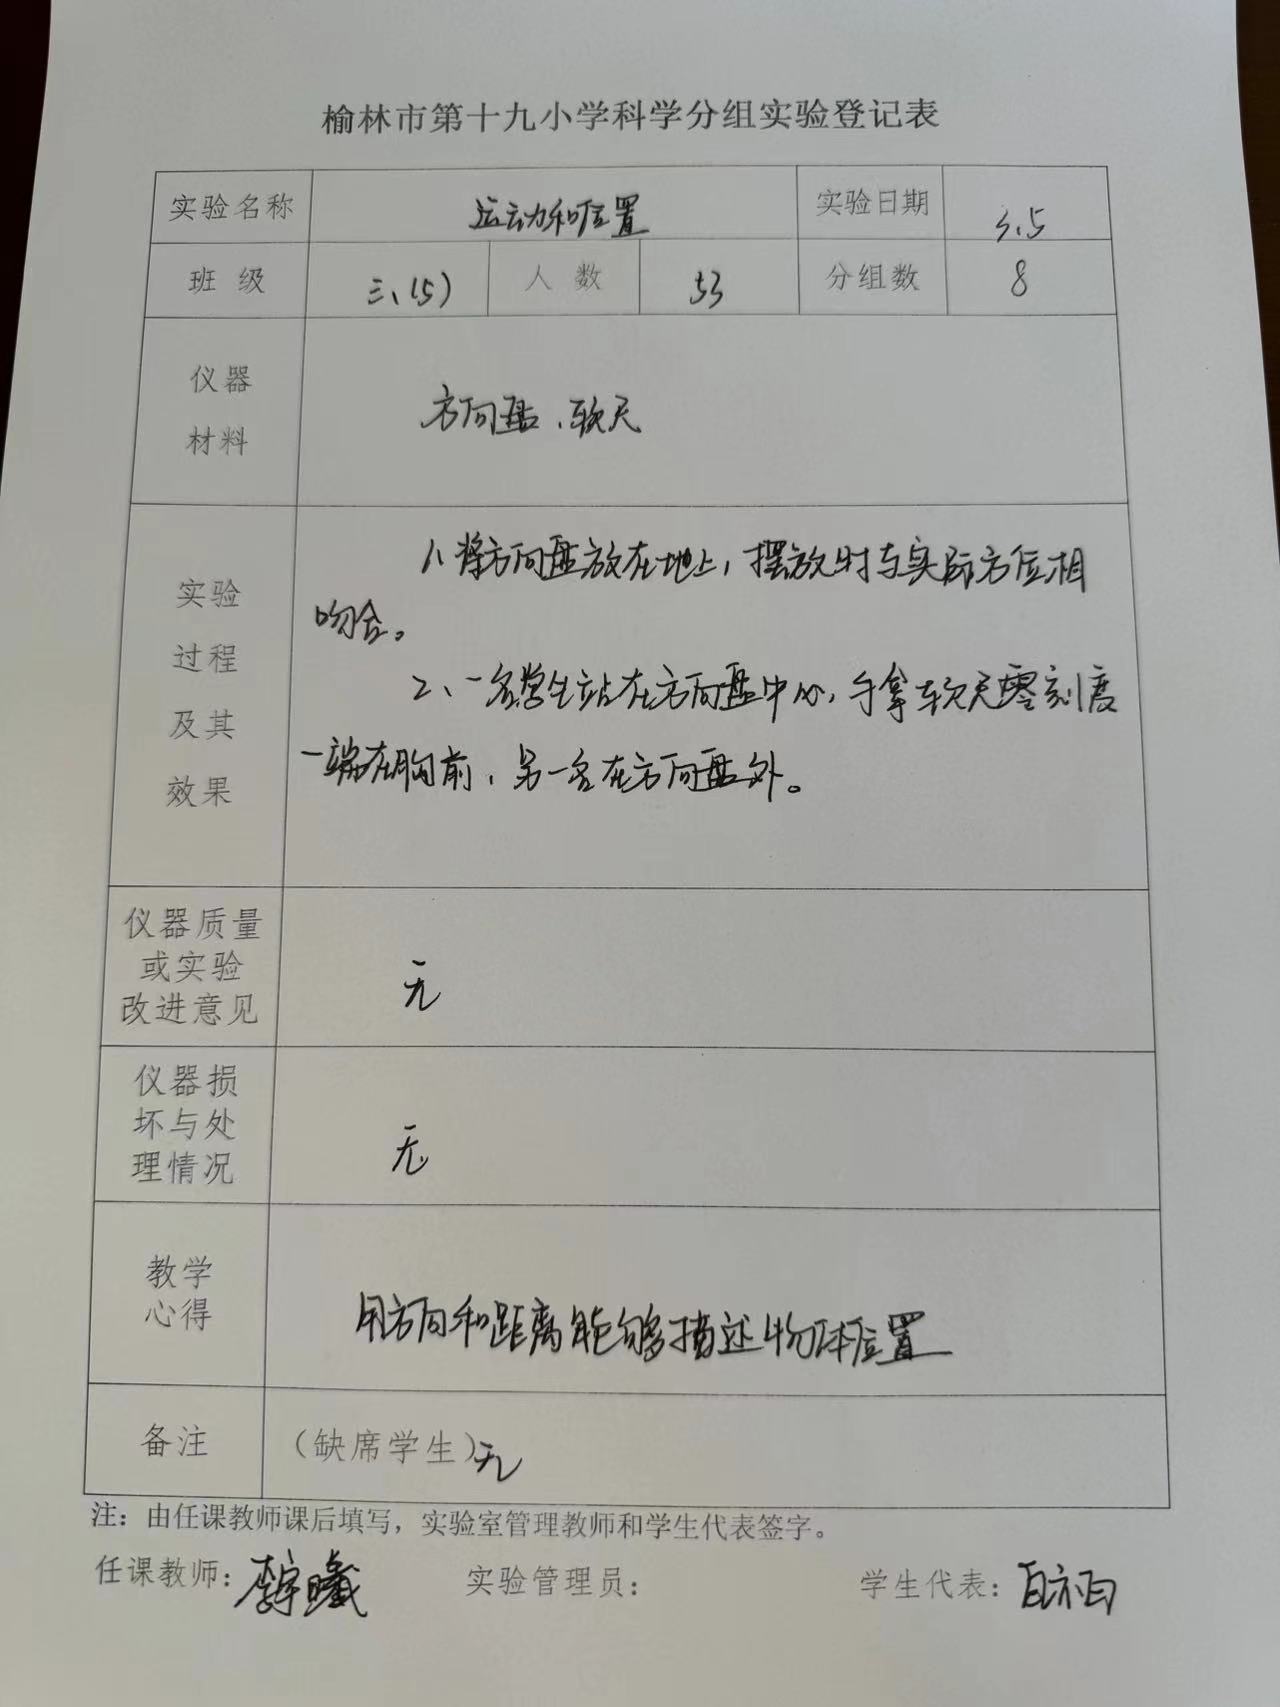 榆林市第十九小学科学分组实验登记表
实验名称 运动和位置 实验日期 3.5
班 级 三、(5) 人 数 53 分组数 8
仪器
材料
方向盘、软尺
实验
过程
及其
效果
1、将方向盘放在地上，摆放时与实际方位相
吻合。
2、一名学生站在方向盘中心，手拿软尺零刻度
一端在胸前，另一名在方向盘外。
仪器质量
或实验
改进意见
无
仪器损
坏与处
理情况
无
教学
心得
用方向和距离能够描述物体位置
备注 （缺席学生）无
注：由任课教师课后填写，实验室管理教师和学生代表签字。
任课教师： 实验管理员： 学生代表：